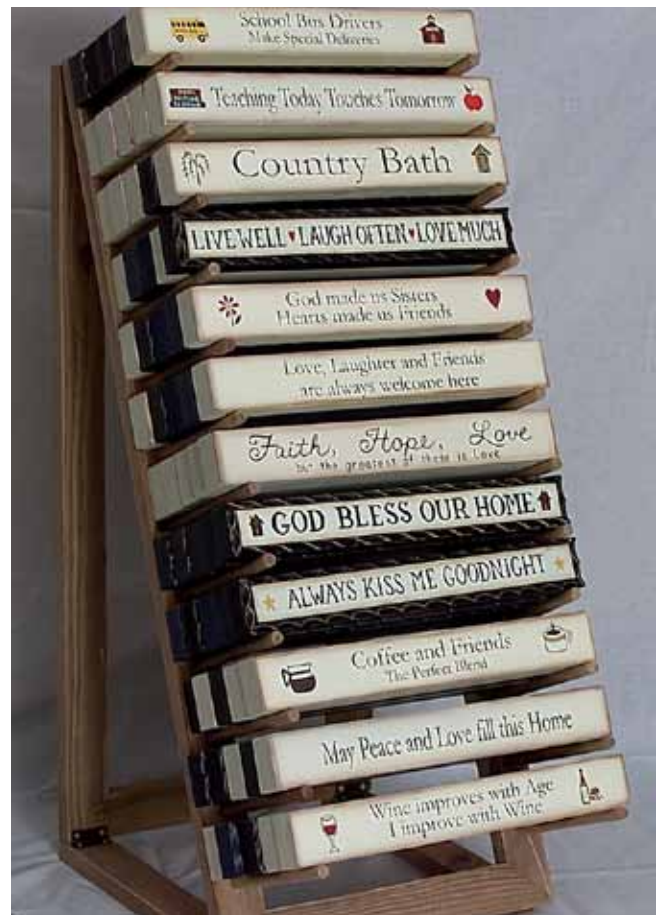 School Bus Drivers
Make Special Deliveries
Teaching Today Touches Tomorrow
Country Bath
LIVE WELL LAUGH OFTEN LOVE MUCH
God made us Sisters
Hearts made us Friends
Love, Laughter and Friends
are always welcome here
Faith, Hope, Love
but the greatest of these is Love
GOD BLESS OUR HOME
ALWAYS KISS ME GOODNIGHT
Coffee and Friends
The Perfect Blend
May Peace and Love fill this Home
Wine improves with Age
I improve with Wine